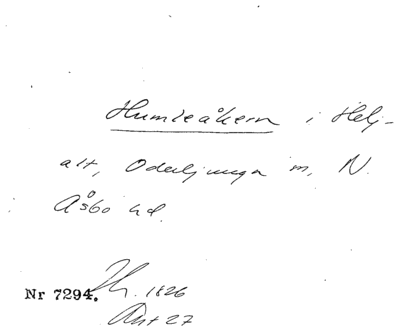 Humleåkern i Helj-
alt, Oderljunga m, N.
Åsbo hd.
Nr 7294. 1826
Ant 27